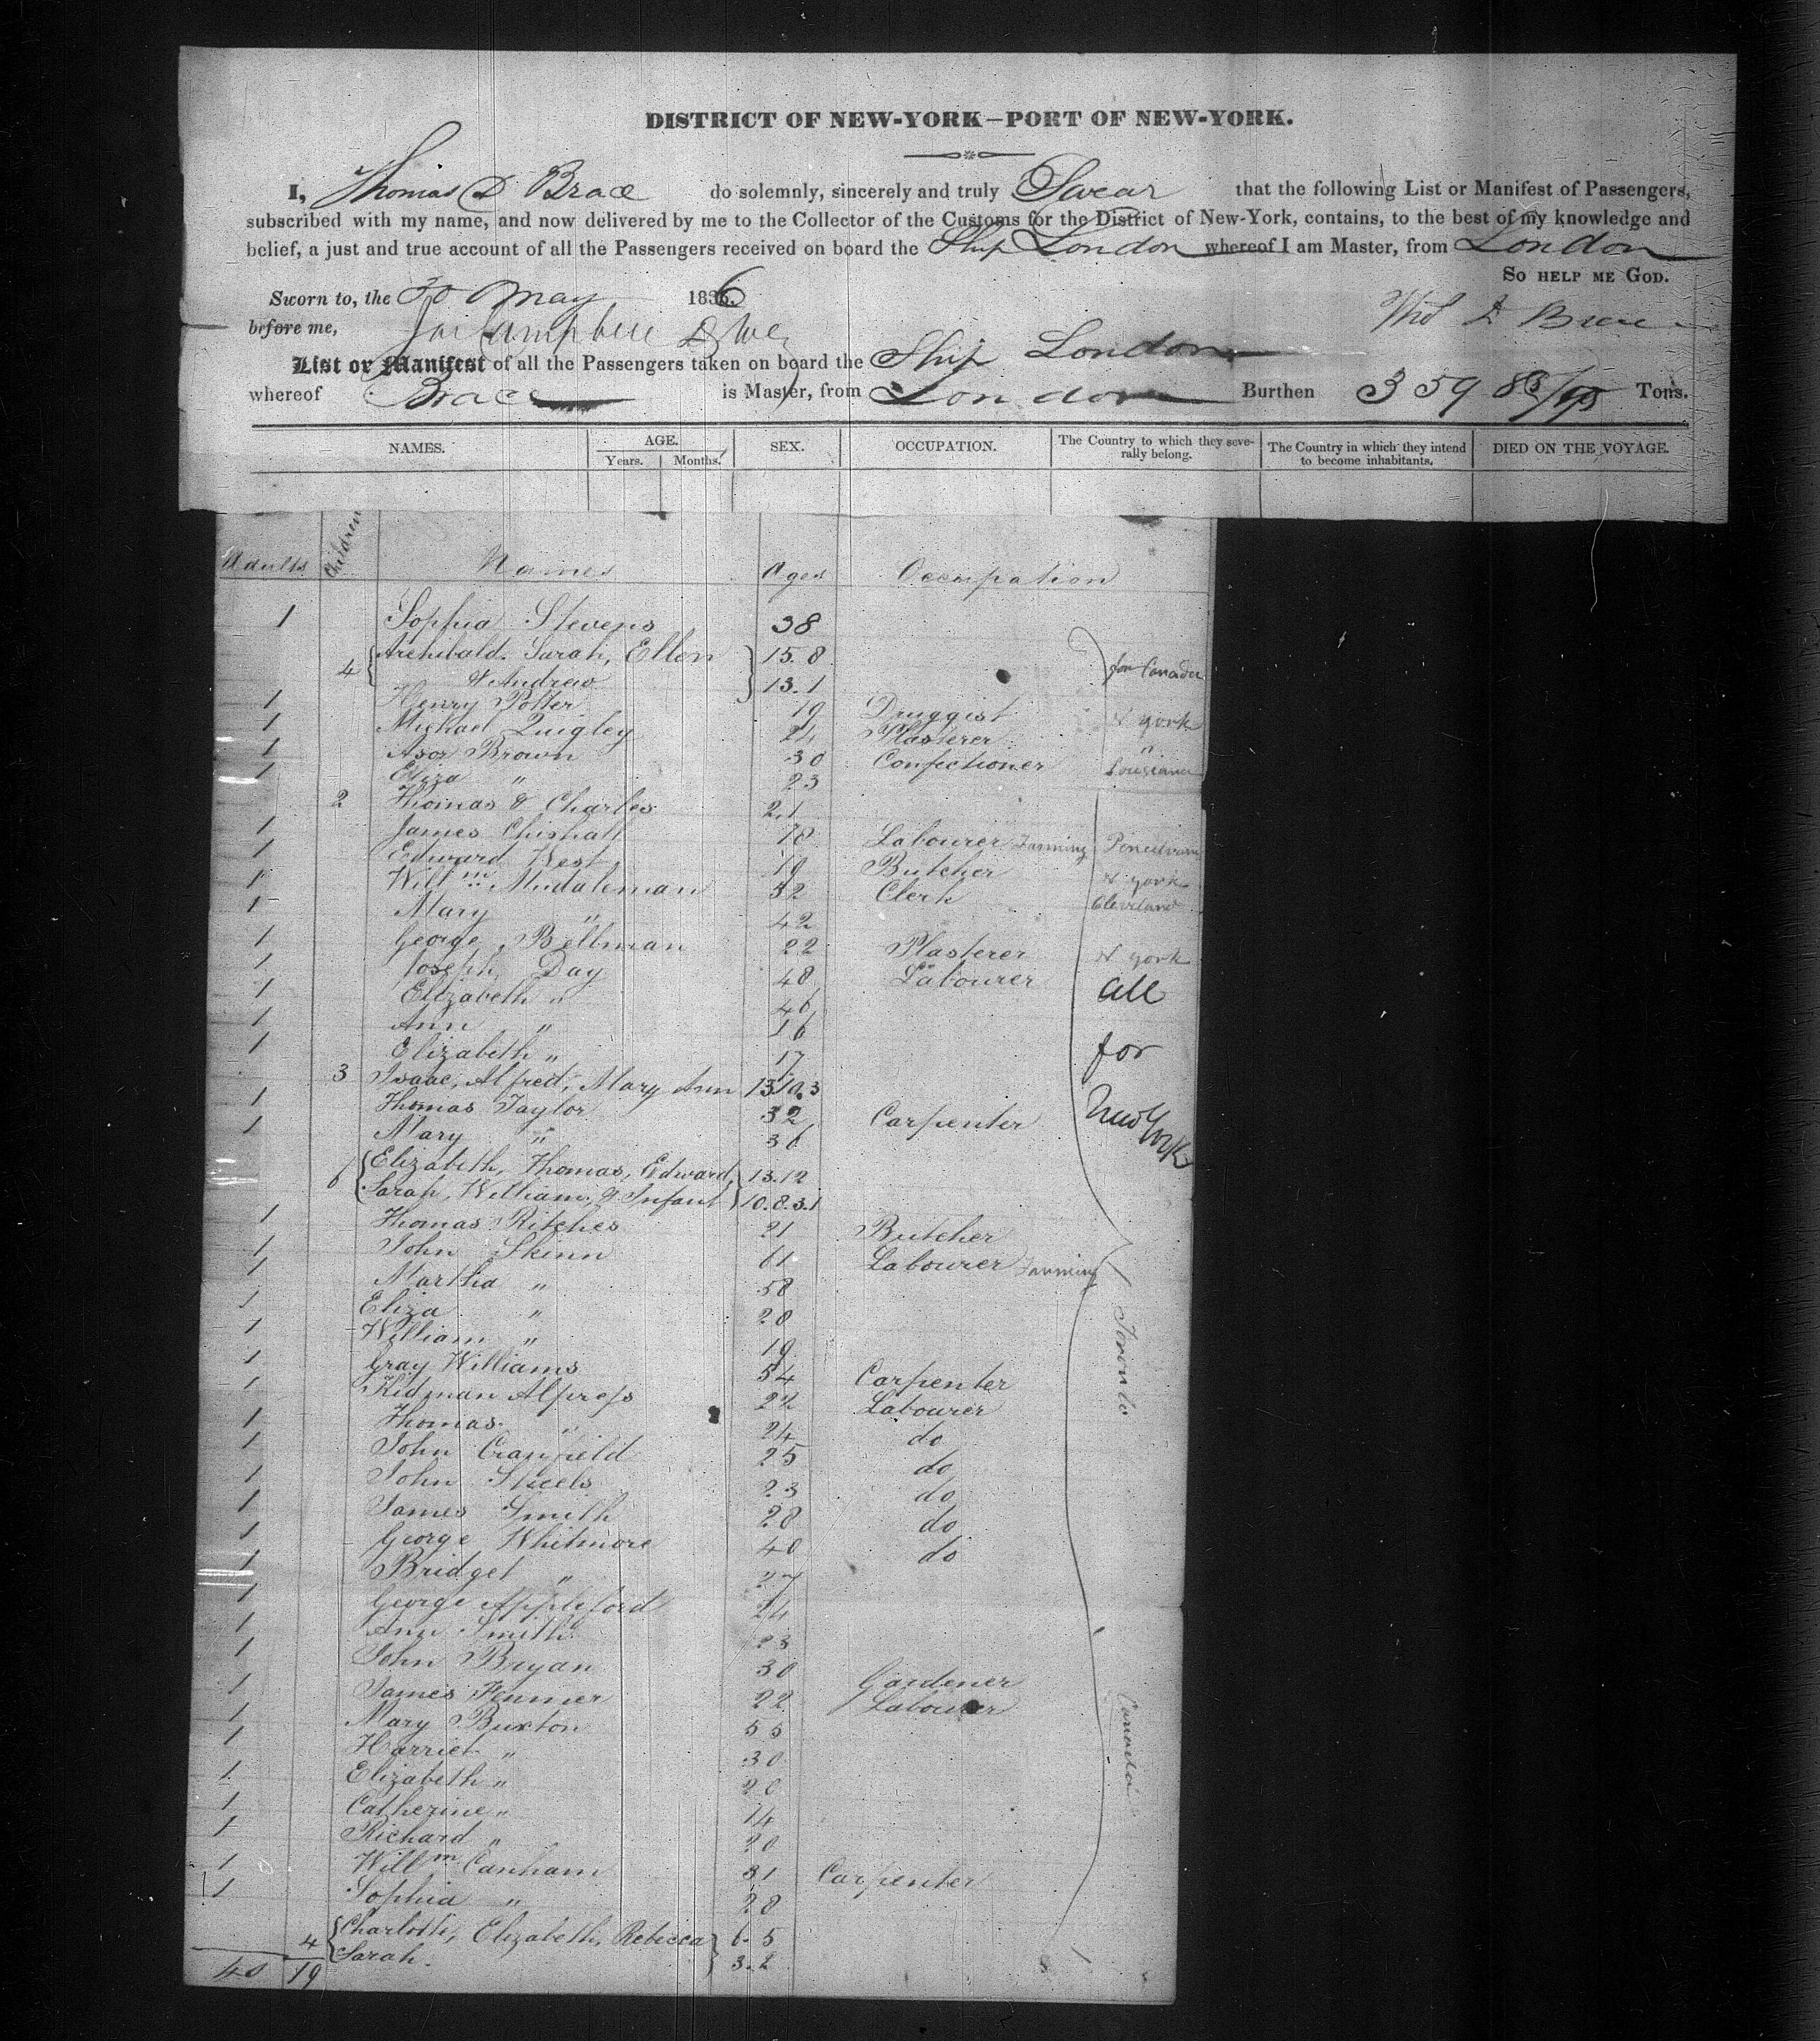 DISTRICT OF NEW-YORK—PORT OF NEW-YORK.
I, Thomas D Brace do solemnly, sincerely and truly Swear that the following List or Manifest of Passengers,
subscribed with my name, and now delivered by me to the Collector of the Customs for the District of New-York, contains, to the best of my knowledge and
belief, a just and true account of all the Passengers received on board the Ship London whereof I am Master, from London
SO HELP ME GOD.
Sworn to, the 30 May 1836.
before me, Campbell
List or Manifest of all the Passengers taken on board the Ship London
whereof Brace is Master, from London Burthen 359 Tons.
NAMES. AGE. SEX. OCCUPATION. The Country to which they seve- The Country in which they intend DIED ON THE VOYAGE.
Years. Months. rally belong. to become inhabitants.
Adults Children Names Ages Occupation
1 Sophia Stevens 38
4 { Archibald. Sarah, Ellen } 15.8 for Canada
& Andrew 13.1
1 Henry Potter 19 Druggist N York
1 Michael Quigley 24 Plasterer "
1 Brown 30 Confectioner Louisiana
1 Eliza " 23
2 Thomas & Charles 2.1
1 James 18 Labourer Farming
1 Edward West 19 Butcher N York
1 Willm 32 Clerk Cleveland
1 Mary " 42
1 George Bellman 22 Plasterer N York
1 Joseph Day 48 Labourer all
1 Elizabeth " 46
1 Ann " 16
1 Elizabeth " 17 for
3 Isaac, Alfred, Mary Ann 13.10.3
1 Thomas Taylor 32 Carpenter New York
1 Mary " 36
6 { Elizabeth, Thomas, Edward, } 13.12
Sarah, William, & Infant 10.8.3.1
1 Thomas Ritches 21 Butcher
1 John Skinn 61 Labourer Farming
1 Martha " 58
1 Eliza " 20
1 William " 19
1 Gray Williams 54 Carpenter
1 Kidman Alpress 22 Labourer
1 Thomas " 24 do
1 John Cranfield 25 do
1 John Steels 23 do
1 James Smith 28 do
1 George Whitmore 40 do
1 Bridget " 27
1 George Appleford 24
1 Ann Smith 23
1 John Bryan 30 Gardener
1 James Fenner 22 Labourer
1 Mary Buxton 55
1 Harriet " 30
1 Elizabeth " 20
1 Catherine " 14
1 Richard " 20
1 Willm Canham 31 Carpenter
1 Sophia " 28
4 { Charlotte, Elizabeth, Rebecca } 6.5
Sarah. 3.2
40 19
Toronto
Canada